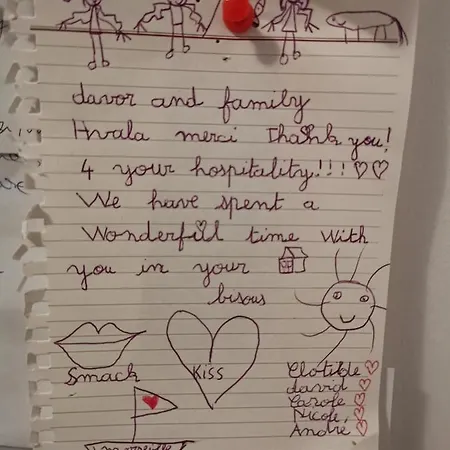 davor and family
Hvala merci Thank you!
4 your hospitality!!!
We have spent a
Wonderful time With
you in your
bisous
Smack
Kiss
Clotilde
david
Carole
Nicole,
André